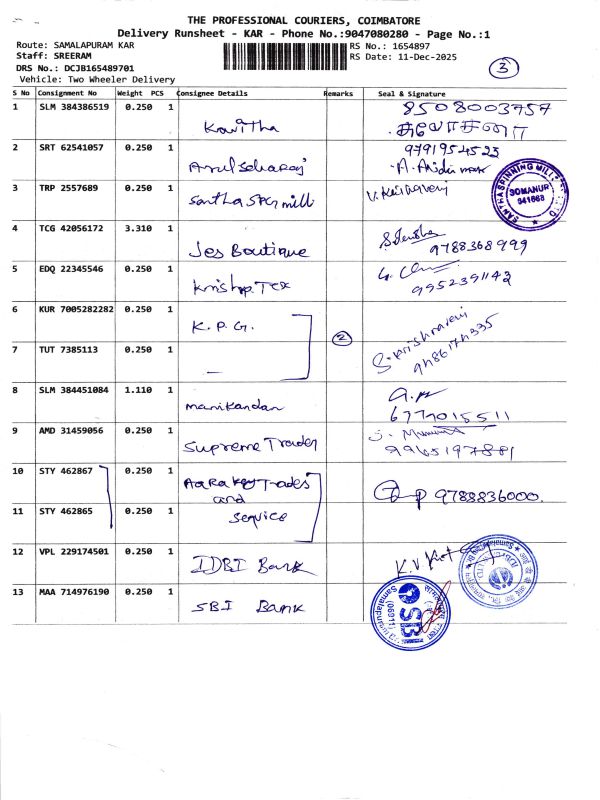 THE PROFESSIONAL COURIERS, COIMBATORE
Delivery Runsheet - KAR - Phone No.:9047080280 - Page No.:1
Route: SAMALAPURAM KAR
RS No.: 1654897
Staff: SREERAM
RS Date: 11-Dec-2025
DRS No.: DCJB165489701
3
Vehicle: Two Wheeler Delivery
S No Consignment No Weight PCS Consignee Details Remarks Seal & Signature
1 SLM 384386519 0.250 1 Kavitha 8508003757
2 SRT 62541057 0.250 1 9791954523
3 TRP 2557689 0.250 1 Santha SPG mill
SANTHA SPINNING MILL SOMANUR 641668
4 TCG 42056172 3.310 1 Jes Boutique 9788368999
5 EDQ 22345546 0.250 1 Tex 9952391142
6 KUR 7005282282 0.250 1 K.P.G. 2
7 TUT 7385113 0.250 1
8 SLM 384451084 1.110 1 Manikandan
9 AMD 31459056 0.250 1 Supreme Trader 9965197881
10 STY 462867 0.250 1 Trades and 9788836000.
11 STY 462865 0.250 1 Service
12 VPL 229174501 0.250 1 IDBI Bank
13 MAA 714976190 0.250 1 SBI Bank
SBI